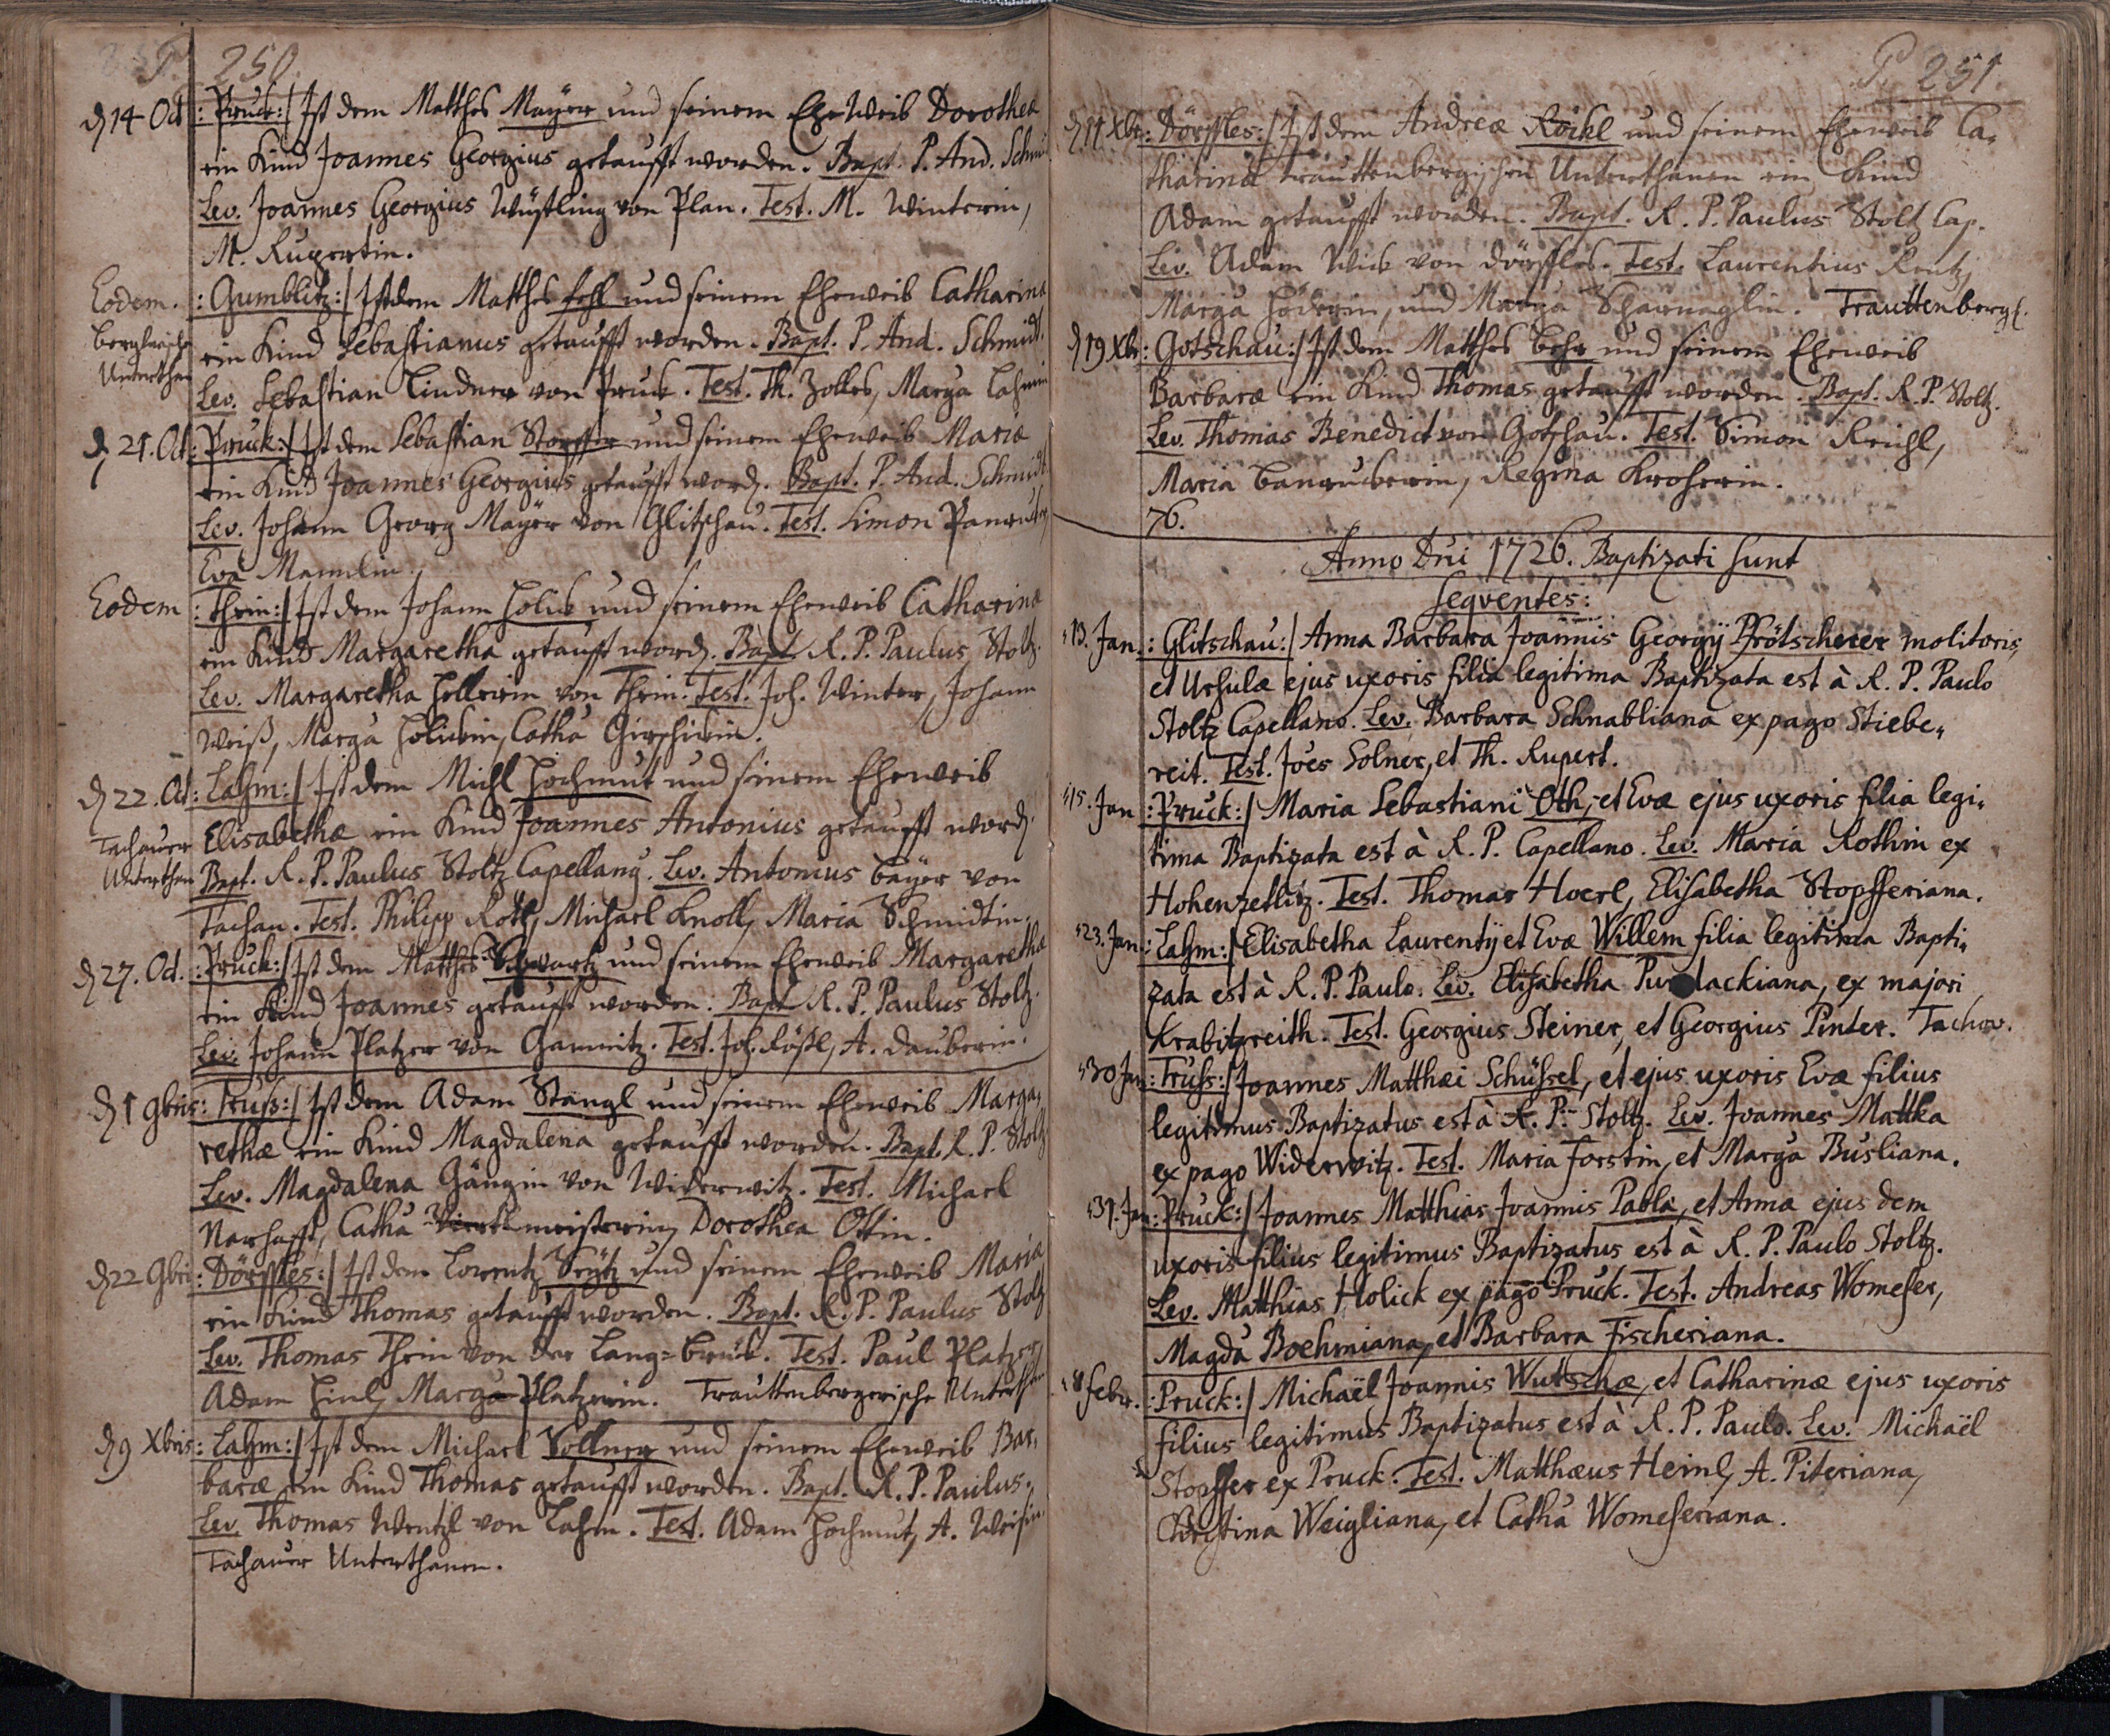 P. 250.
d 14 Oct :Pruck:/ Ist dem Matthes Mayer und seinem Eheweib Dorothea
ein Kind Joannes Georgius getaufft worden. Bapt. P. And. Schmi
Lev. Joannes Georgius Wüstling von Plan. Test. M. Winterin,
M. Rupertin.
Eodem. :Gumblitz:/ Ist dem Matthes Fehl und seinem Eheweib Catharina
ein Kind Sebastianus getaufft worden. Bapt. P. And. Schmidt.
Unterthan Lev. Sebastian Lindner von Pruck. Test. Th. Zolles, Marga Lahmin
d 21. Oct :Pruck:/ Ist dem Sebastian Stopffer und seinem Eheweib Maria
ein Kind Joannes Georgius getaufft word. Bapt. P. And. Schmidt
Lev. Johann Georg Mayer von Glitschau. Test. Simon
Eva
Eodem :Thein:/ Ist dem Johann Holick und seinem Eheweib Catharina
ein Kind Margaretha getaufft word. Bapt. R. P. Paulus Stoltz.
Lev. Margaretha Hellerin von Thein. Test. Joh. Winter, Johann
Weiß, Marga Holickin, Catha
d 22. Oct :Lahm:/ Ist dem Michl Hochmut und seinem Eheweib
Tachauer Elisabethæ ein Kind Joannes Antonius getaufft word.
Unterthan Bapt. R. P. Paulus Stoltz Capellang. Lev. Antonius Bayer von
Tachau. Test. Philipp Rotl, Michael Knoll, Maria Schmidtin.
d 27. Oct. :Pruck:/ Ist dem Matthes Schwartz und seinem Eheweib Margaretha
ein Kind Joannes getaufft worden. Bapt R. P. Paulus Stoltz.
Lev. Johann Platzer von Gamnitz. Test. Joh. Rößl, A. Dauberin.
d 1 9bris :Truss:/ Ist dem Adam Stängl und seinem Eheweib Marga,
rethæ ein Kind Magdalena getaufft worden. Bapt. R. P. Stoltz
Lev. Magdalena Gängin von Widerwitz. Test. Michael
Narhafft, Catha meisterin, Dorothea Ottin.
d 22 9bri :Dörffles:/ Ist dem Lorentz Reütz und seinem Eheweib Maria
ein Kind Thomas getaufft worden. Bapt. R. P. Paulus Stoltz
Lev. Thomas Thein von der Lang=bruck. Test. Paul Platzer,
Adam Heinl, Marga Platzerin. Trauttenbergerische Unterthan
d 9 Xbris :Lahm:/ Ist dem Michael Vollner und seinem Eheweib Bar,
baræ ein Kind Thomas getaufft worden. Bapt. R. P. Paulus.
Lev. Thomas Wentzl von Lahm. Test. Adam Hochmut, A. Weisin.
Tachauer Unterthanen.
P. 251.
d 11 Xbr :Dörffles:/ Ist dem Andreæ Röckl und seinem Eheweib Ca,
tharina trauttenbergischen Unterthanen ein Kind
Adam getaufft worden. Bapt. R. P. Paulus Stoltz Cap.
Lev. Adam Wick von Dörffles. Test. Laurentius Reutz,
Marga Höderin, und Marga Scharnaglin. Trauttenbergl.
d 19 Xbr :Gotschau:/ Ist dem Matthes Behr und seinem Eheweib
Barbaræ ein Kind Thomas getaufft worden. Bapt. R. P. Stoltz.
Lev. Thomas Benedict von Gotschau. Test. Simon Reichl,
Maria Regina
76.
Anno Dni 1726. Baptizati sunt
seqventes:
13. Jan. :Glitschau:/ Anna Barbara Joannis Georgij Pfrötscherer molitoris,
et Ursulæ ejus uxoris filia legitima Baptizata est à R. P. Paulo
Stoltz Capellano. Lev. Barbara Schnabliana ex pago Stiebe,
reit. Test. Joes Solner, et Th. Rupert.
15. Jan :Pruck:/ Maria Sebastiani Oth, et Evæ ejus uxoris filia legi,
tima Baptizata est à R. P. Capellano. Lev. Maria Rothin ex
Hohenzetlitz. Test. Thomas Hoerl, Elisabetha Stopfferiana.
23. Jan. :Lahm:/ Elisabetha Laurentij et Evæ Willem filia legitima Bapti,
zata est à R. P. Paulo. Lev. Elisabetha Purdackiana, ex majori
Krabitzreith. Test. Georgius Steiner, et Georgius Pinter. Tachov.
30 Jan :Truss:/ Joannes Matthæi Schüssel, et ejus uxoris Evæ filius
legitimus Baptizatus est à R. P. Stoltz. Lev. Joannes Mattka
ex pago Widerwitz. Test. Maria Forstin, et Marga Busliana.
31. Jan :Pruck:/ Joannes Matthias Joannis Pabla, et Annæ ejus dem
uxoris filius legitimus Baptizatus est à R. P. Paulo Stoltz.
Lev. Matthias Holick ex pago Pruck. Test. Andreas Womeser,
Magda Boehmiana, et Barbara Fischeriana.
8 Febr. :Pruck:/ Michaël Joannis Wutschæ, et Catharinæ ejus uxoris
filius legitimus Baptizatus est à R. P. Paulo. Lev. Michaël
Stopffer ex Pruck. Test. Matthæus Heinl, A. Piteriana,
Christina Weigliana, et Catha Womeseriana.